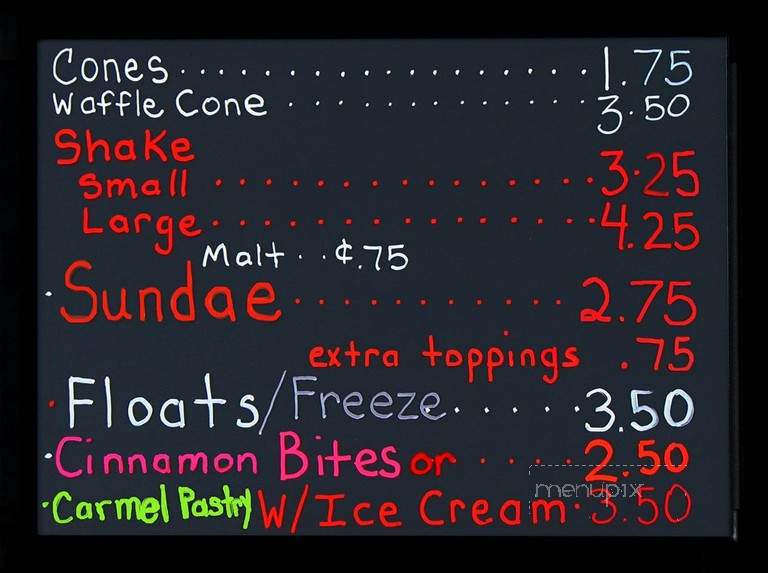 Cones.....................1.75
Waffle Cone...............3.50
Shake
Small.....................3.25
Large.....................4.25
Malt...¢.75
·Sundae...................2.75
extra toppings .75
·Floats/Freeze......3.50
·Cinnamon Bites or ....2.50
·Carmel Pastry W/Ice Cream.3.50
menupix